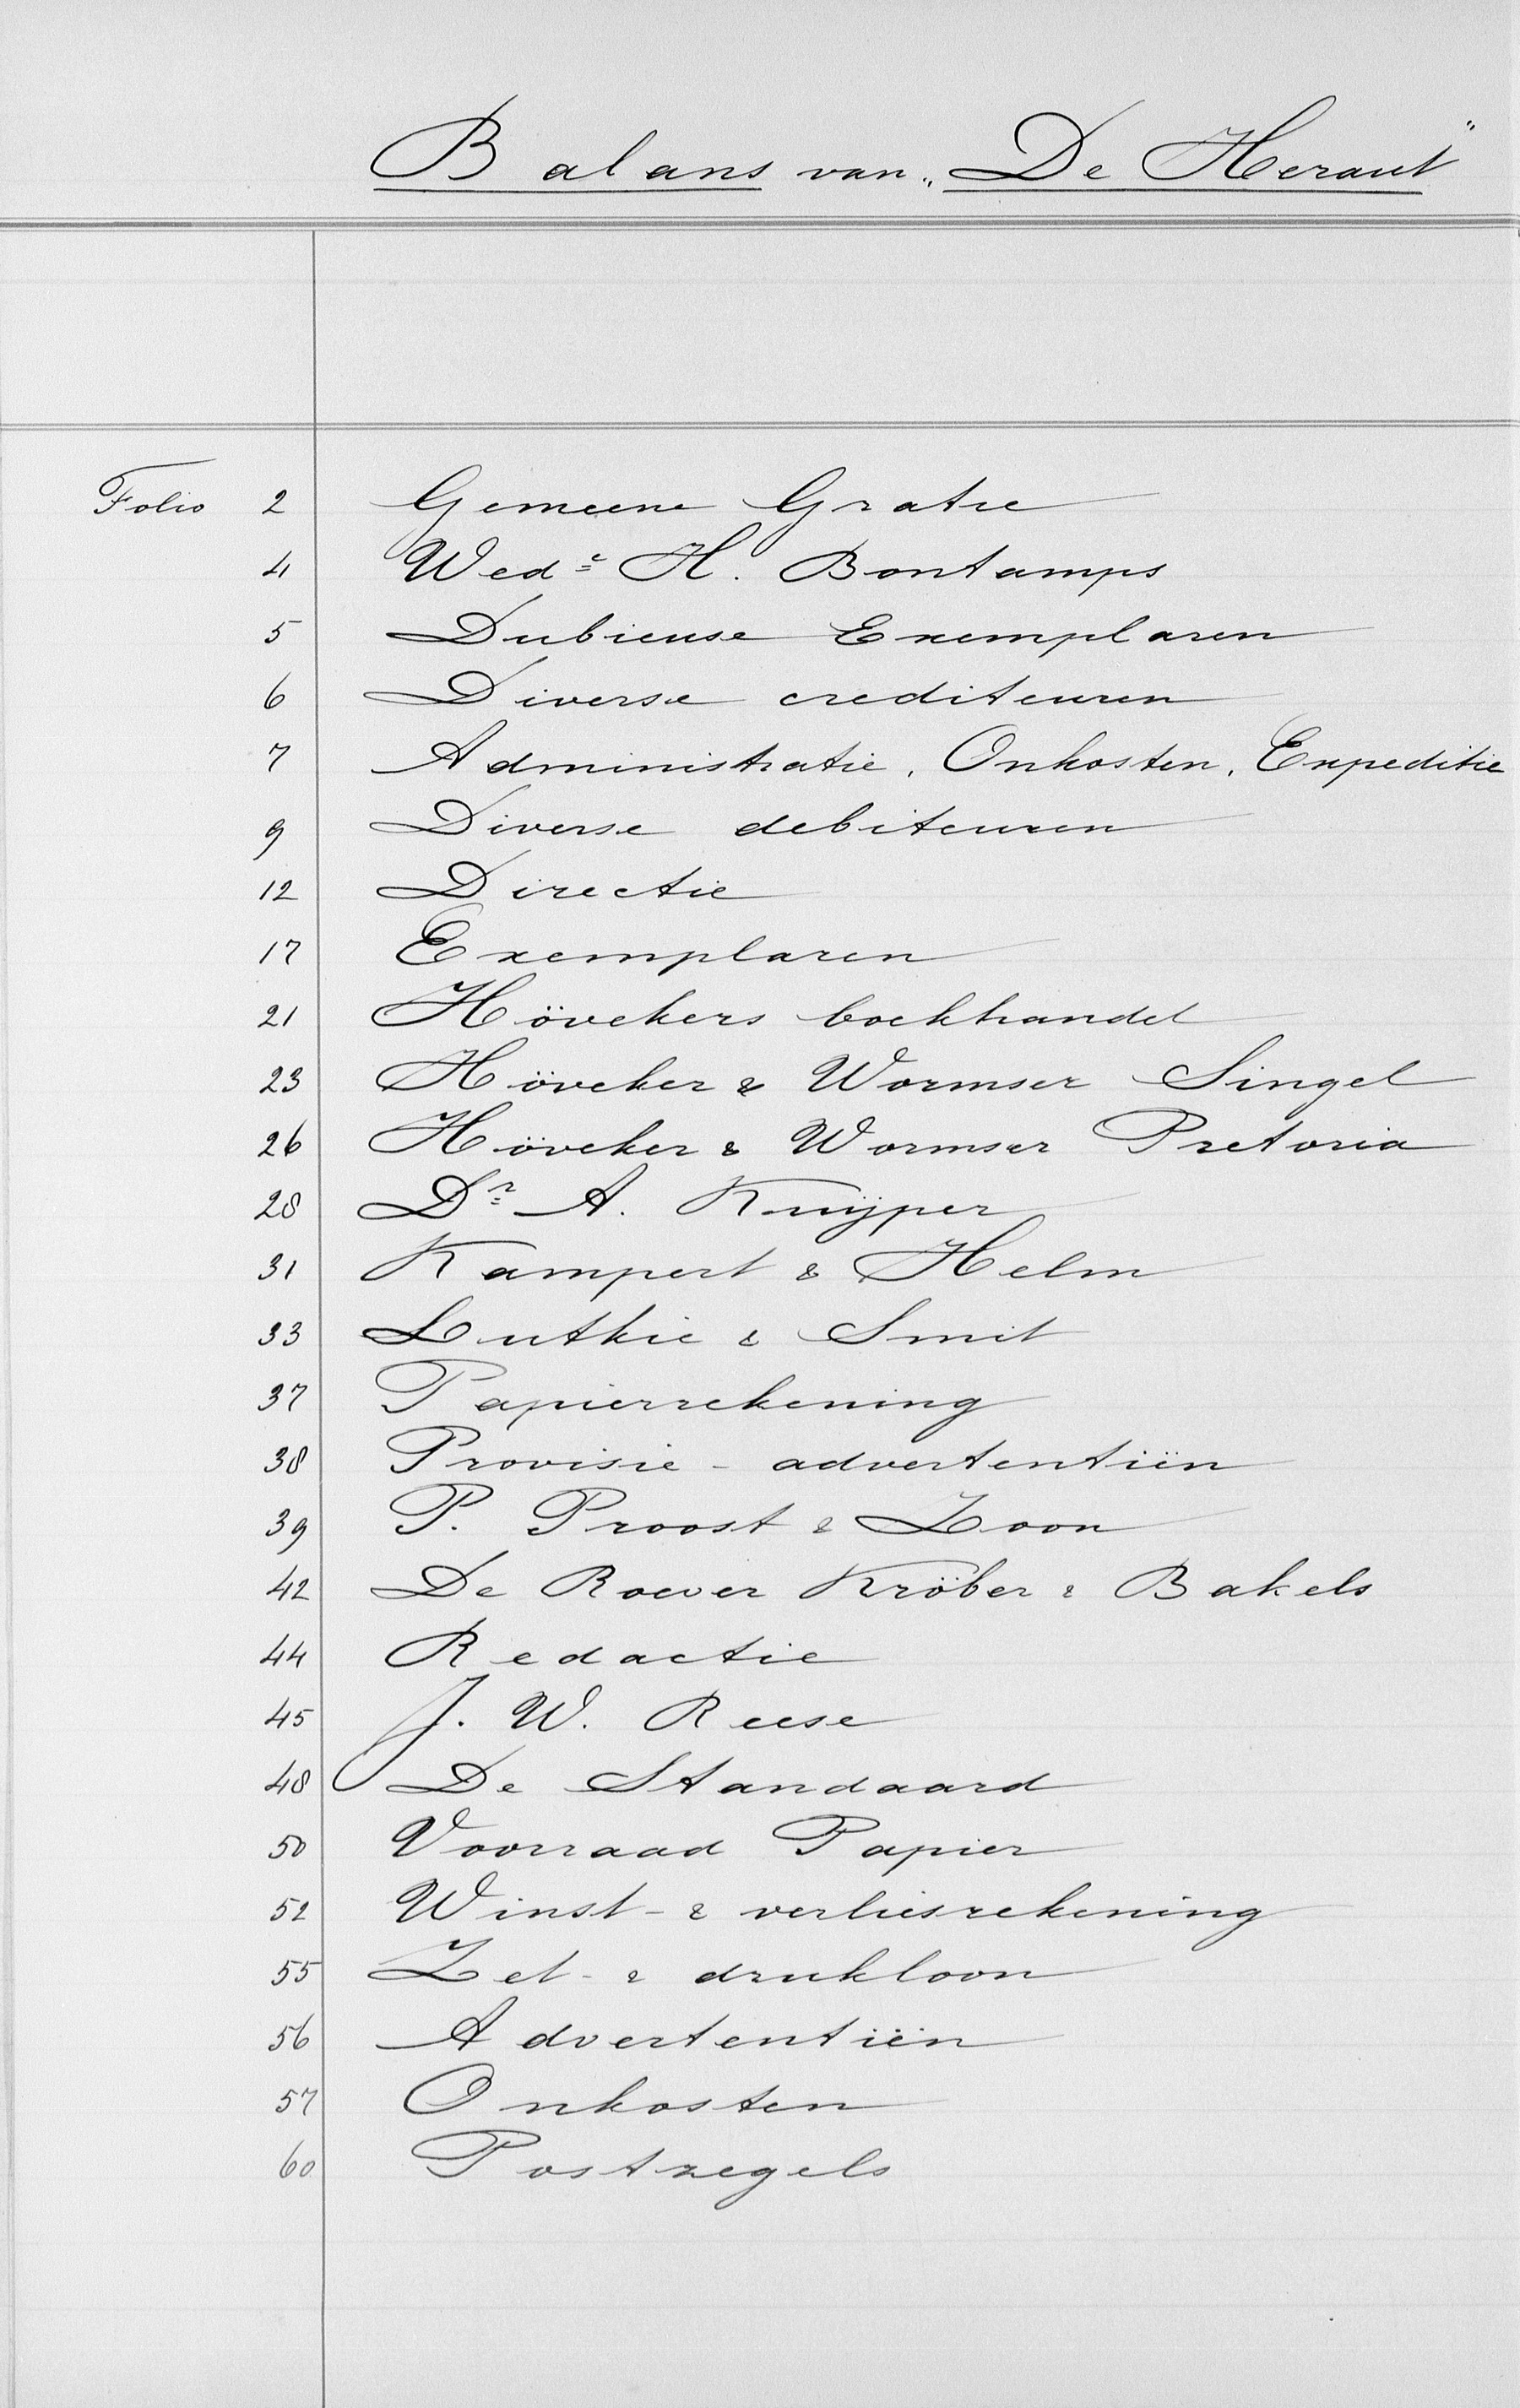 Balans van „De Heraut"
Folio 2 Gemeene Gratie
4 Wedᵉ H. Bontamps
5 Dubieuse Exemplaren
6 Diverse crediteuren
7 Administratie, Onkosten, Expeditie
9 Diverse debiteuren
12 Directie
17 Exemplaren
21 Hövekers boekhandel
23 Höveker & Wormser Singel
26 Höveker & Wormser Pretoria
28 Dʳ A. Kuijper
31 Kampert & Helm
33 Luthie & Smit
37 Papierrekening
38 Provisie-advertentiën
39 P. Proost & Zoon
42 De Roever Kröber & Bakels
44 Redactie
45 J. W. Reese
48 De Standaard
50 Voorraad Papier
52 Winst- & verliesrekening
55 Zet- & drukloon
56 Advertentiën
57 Onkosten
60 Postzegels